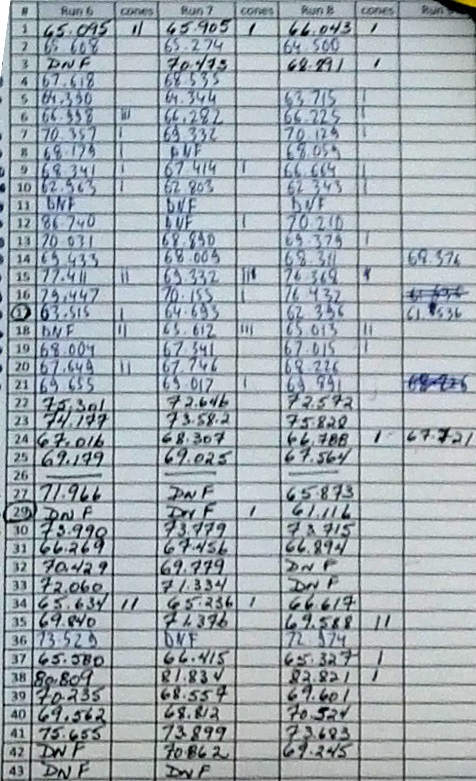 # Run 6 cones Run 7 cones Run 8 cones Run
1 65.095 11 65.905 1 66.043 1
2 65.608 65.274 64.500
3 DNF 70.473 68.891 1
4 67.618 68.535
5 64.390 64.344 63.715 1
6 66.998 111 66.282 66.225 1
7 70.357 1 69.332 70.129 1
8 68.179 1 DNF 68.059
9 68.341 1 67.414 1 66.664 11
10 62.963 1 62.803 62.343 1
11 DNF DNF DNF
12 86.740 DNF 1 70.210
13 70.031 68.890 69.379 1
14 69.433 68.009 68.311 68.376
15 77.411 11 69.332 76.368
16 79.447 70.155 1 76.432
63.515 1 64.693 62.396
18 DNF 11 65.612 111 65.013 11
19 68.004 67.341 67.015 1
20 67.649 11 67.746 68.226
21 69.655 69.017 1 69.991
22 75.301 72.646 72.572
23 74.177 73.582 75.828
24 67.016 68.307 66.788 1 67.721
25 69.179 69.025 67.564
26
27 71.966 DNF 65.873
29 DNF DNF 1 61.116
30 73.990 73.779 73.715
31 66.269 67.456 66.894
32 70.429 69.779 DNF
33 72.060 71.334 DNF
34 65.634 11 65.236 1 66.617
35 69.840 71.376 69.588 11
36 73.529 DNF 72.974
37 65.580 66.415 65.327 1
38 80.809 81.834 82.821 1
39 70.235 68.559 69.601
40 69.562 68.812 70.524
41 75.655 73.899 73.683
42 DNF 70.862 69.245
43 DNF DNF